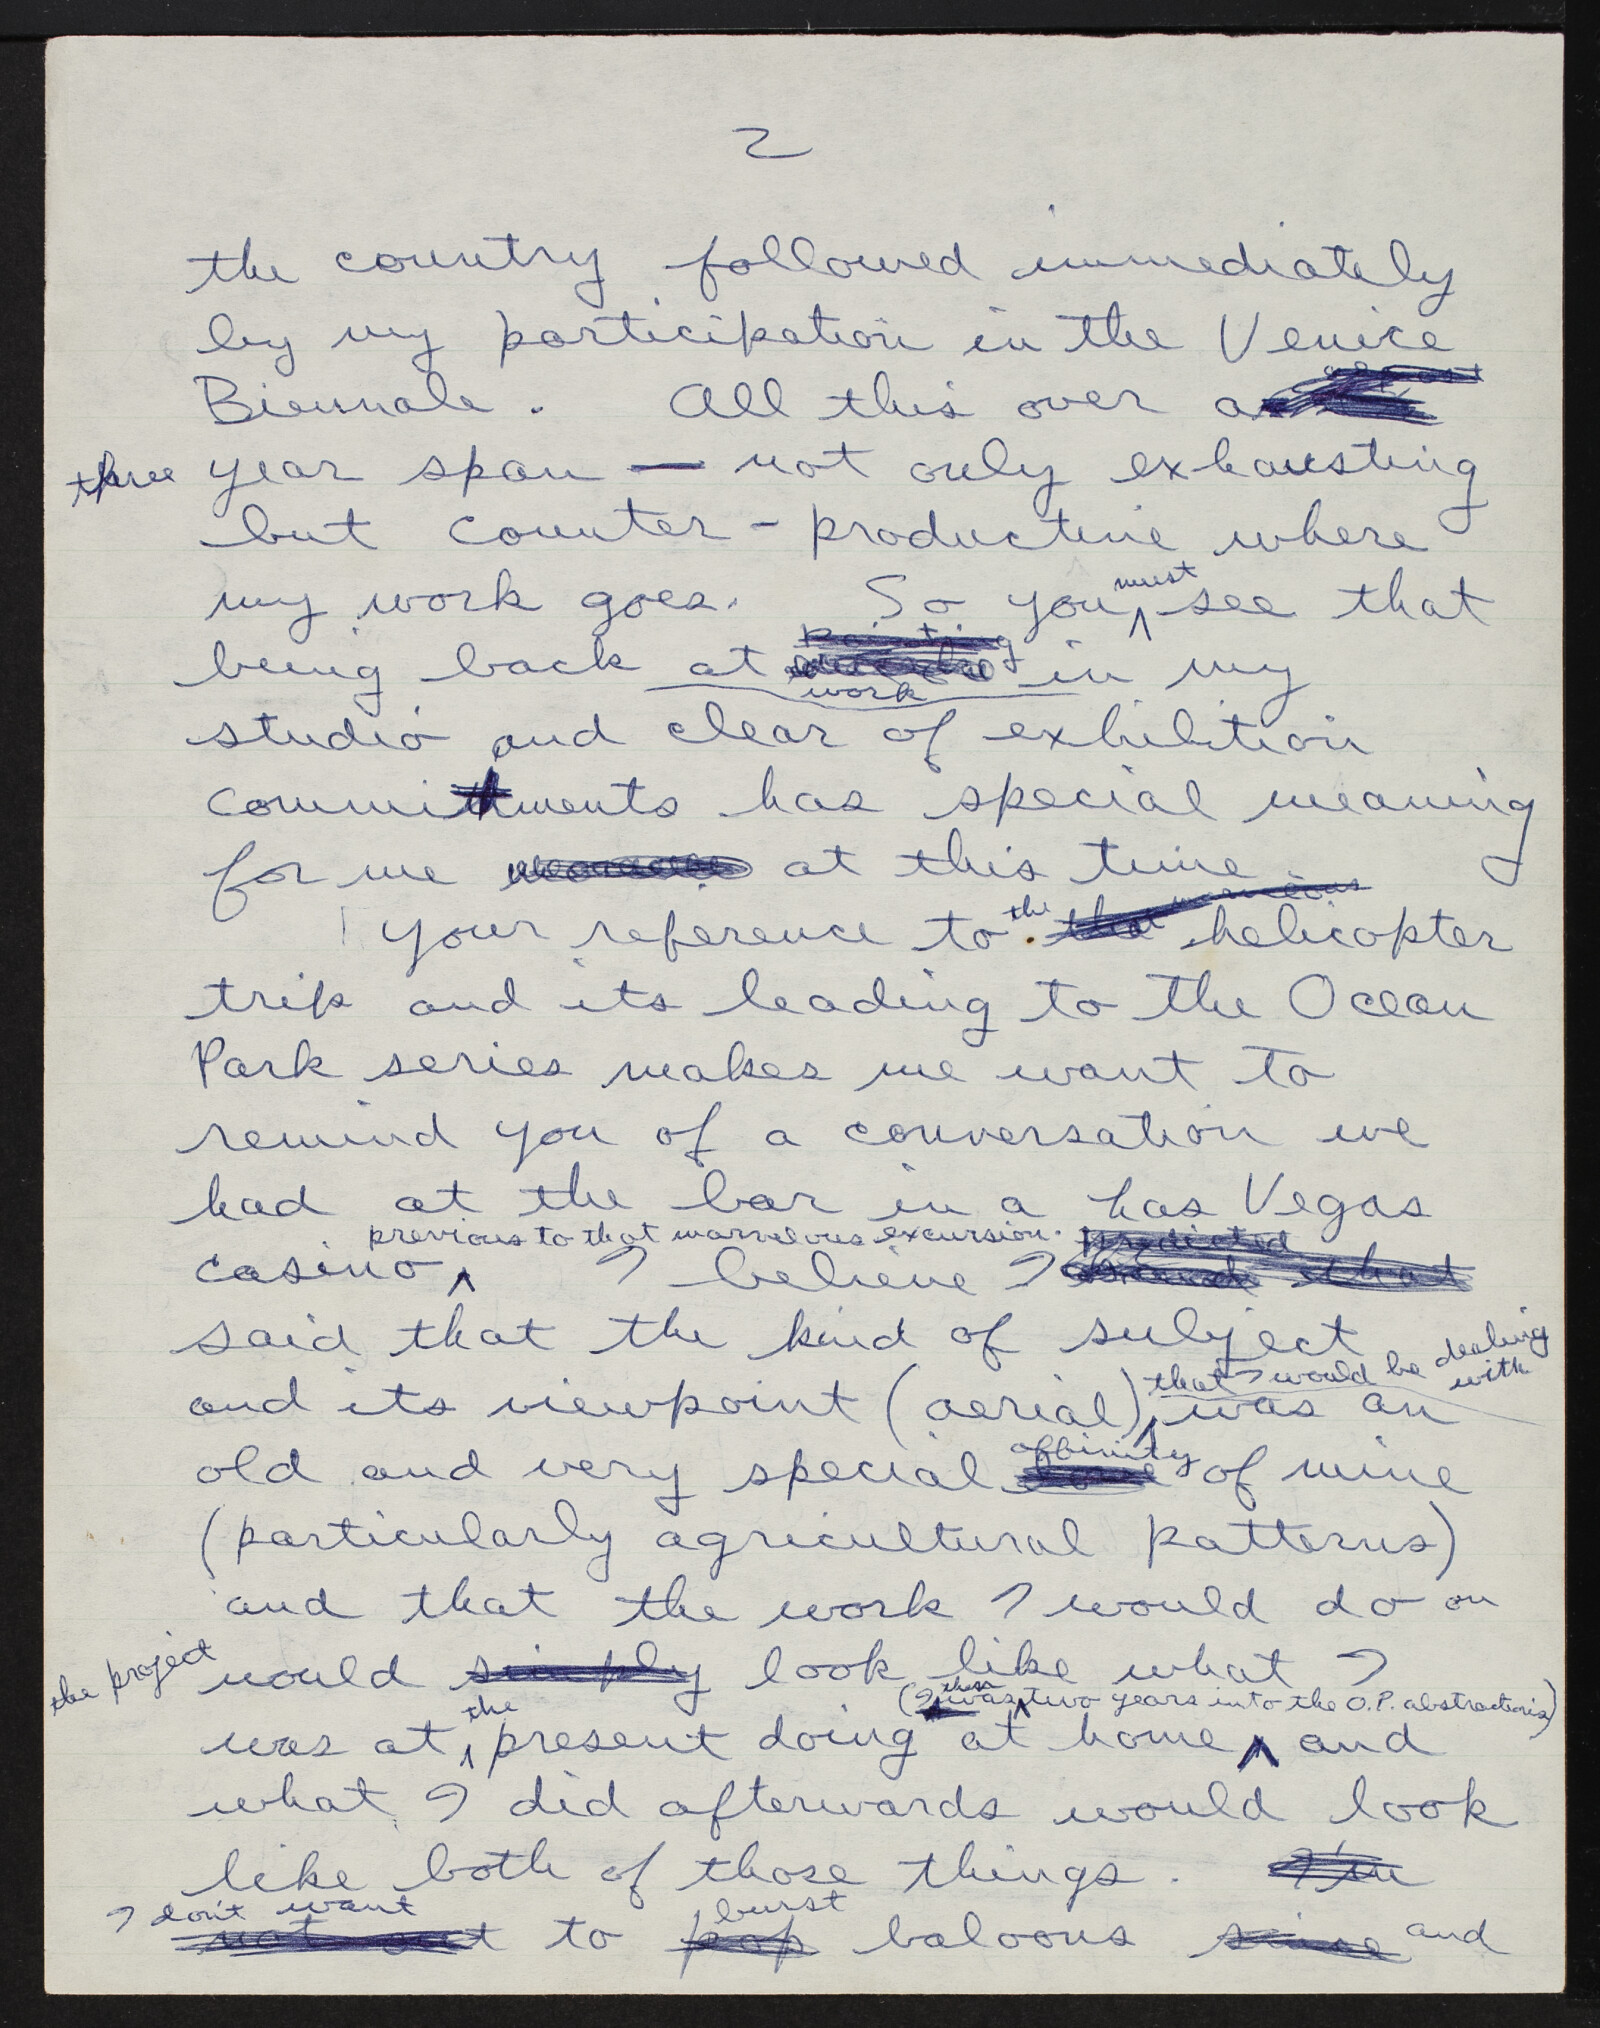 2
the country followed immediately
by my participation in the Venice
Biennale. All this over a
three year span — not only exhausting
but counter-productive where
my work goes. So you must see that
being back at painting work in my
studio and clear of exhibition
commitments has special meaning
for me at this time
Your reference to the that various helicopter
trip and its leading to the Ocean
Park series makes me want to
remind you of a conversation we
had at the bar in a Las Vegas
previous to that marvelous excursion. predicted
casino I believe I that
said that the kind of subject
that I would be dealing with
and its viewpoint (aerial) was an
affinity
old and very special love of mine
(particularly agricultural patterns)
and that the work I would do on
the project would simply look like what I
then
the (I was two years into the O.P. abstractions)
was at present doing at home and
what I did afterwards would look
like both of those things. I'm
I don't want burst
not out to pop baloons since and